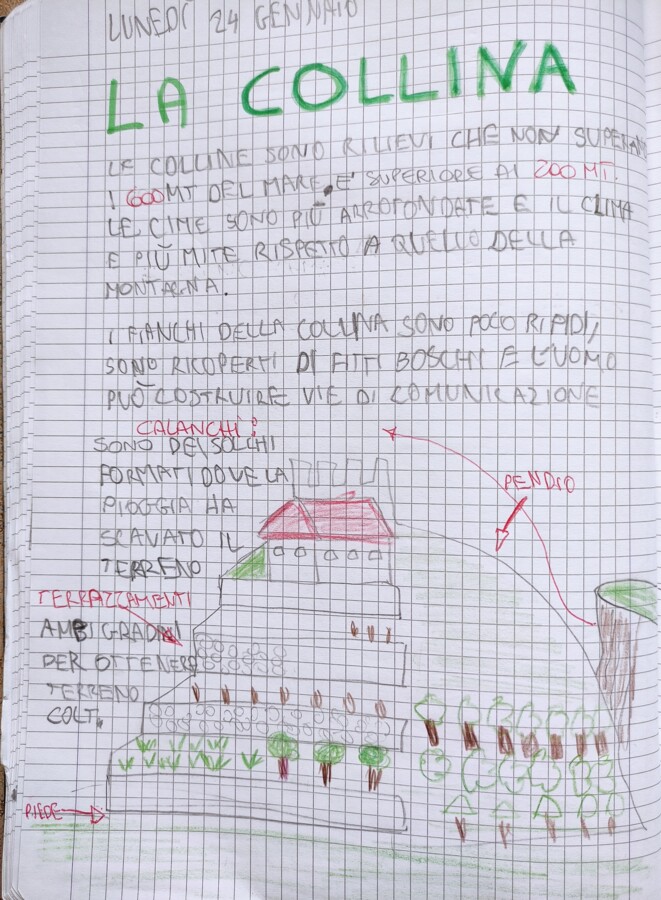 LUNEDÌ 24 GENNAIO
LA COLLINA
LE COLLINE SONO RILIEVI CHE NON SUPERANO
I 600MT DEL MARE, E' SUPERIORE AI 200 MT.
LE CIME SONO PIÙ ARROTONDATE E IL CLIMA
E PIÙ MITE RISPETTO A QUELLO DELLA
MONTAGNA.
I FIANCHI DELLA COLLINA SONO POCO RIPIDI,
SONO RICOPERTI DI FITTI BOSCHI E L'UOMO
PUÒ COSTRUIRE VIE DI COMUNICAZIONE
CALANCHI:
SONO DEI SOLCHI
FORMATI DOVE LA
PIOGGIA HA
SCAVATO IL
TERRENO
PENDIO
TERRAZZAMENTI
AMBI GRADINI
PER OTTENERE
TERRENO
COLT.
PIEDE